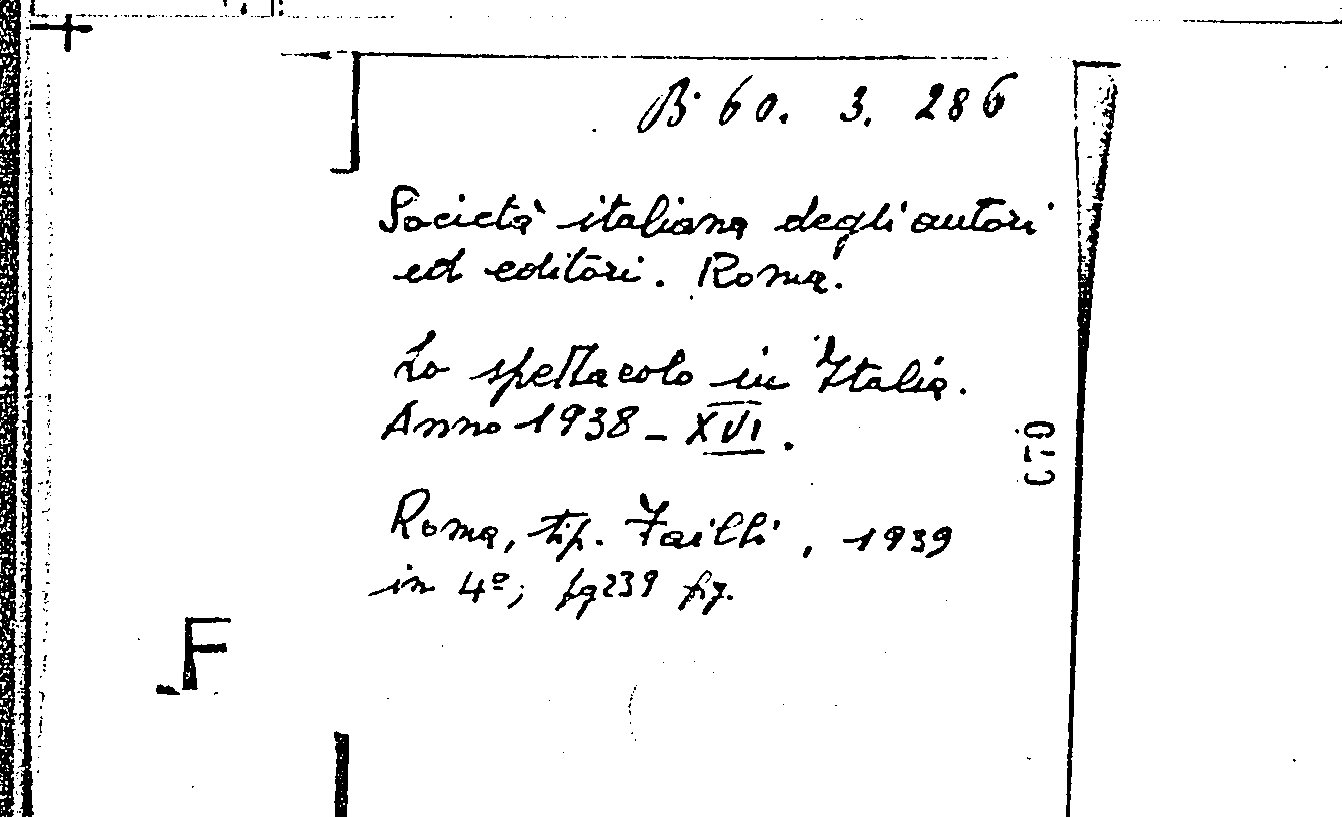 B 60. 3. 286
Società italiana degli autori
ed editori. Roma.
Lo spettacolo in Italia.
Anno 1938 - XVI.
Roma, tip. Failli, 1939
in 4º; pg 239 fig.
F